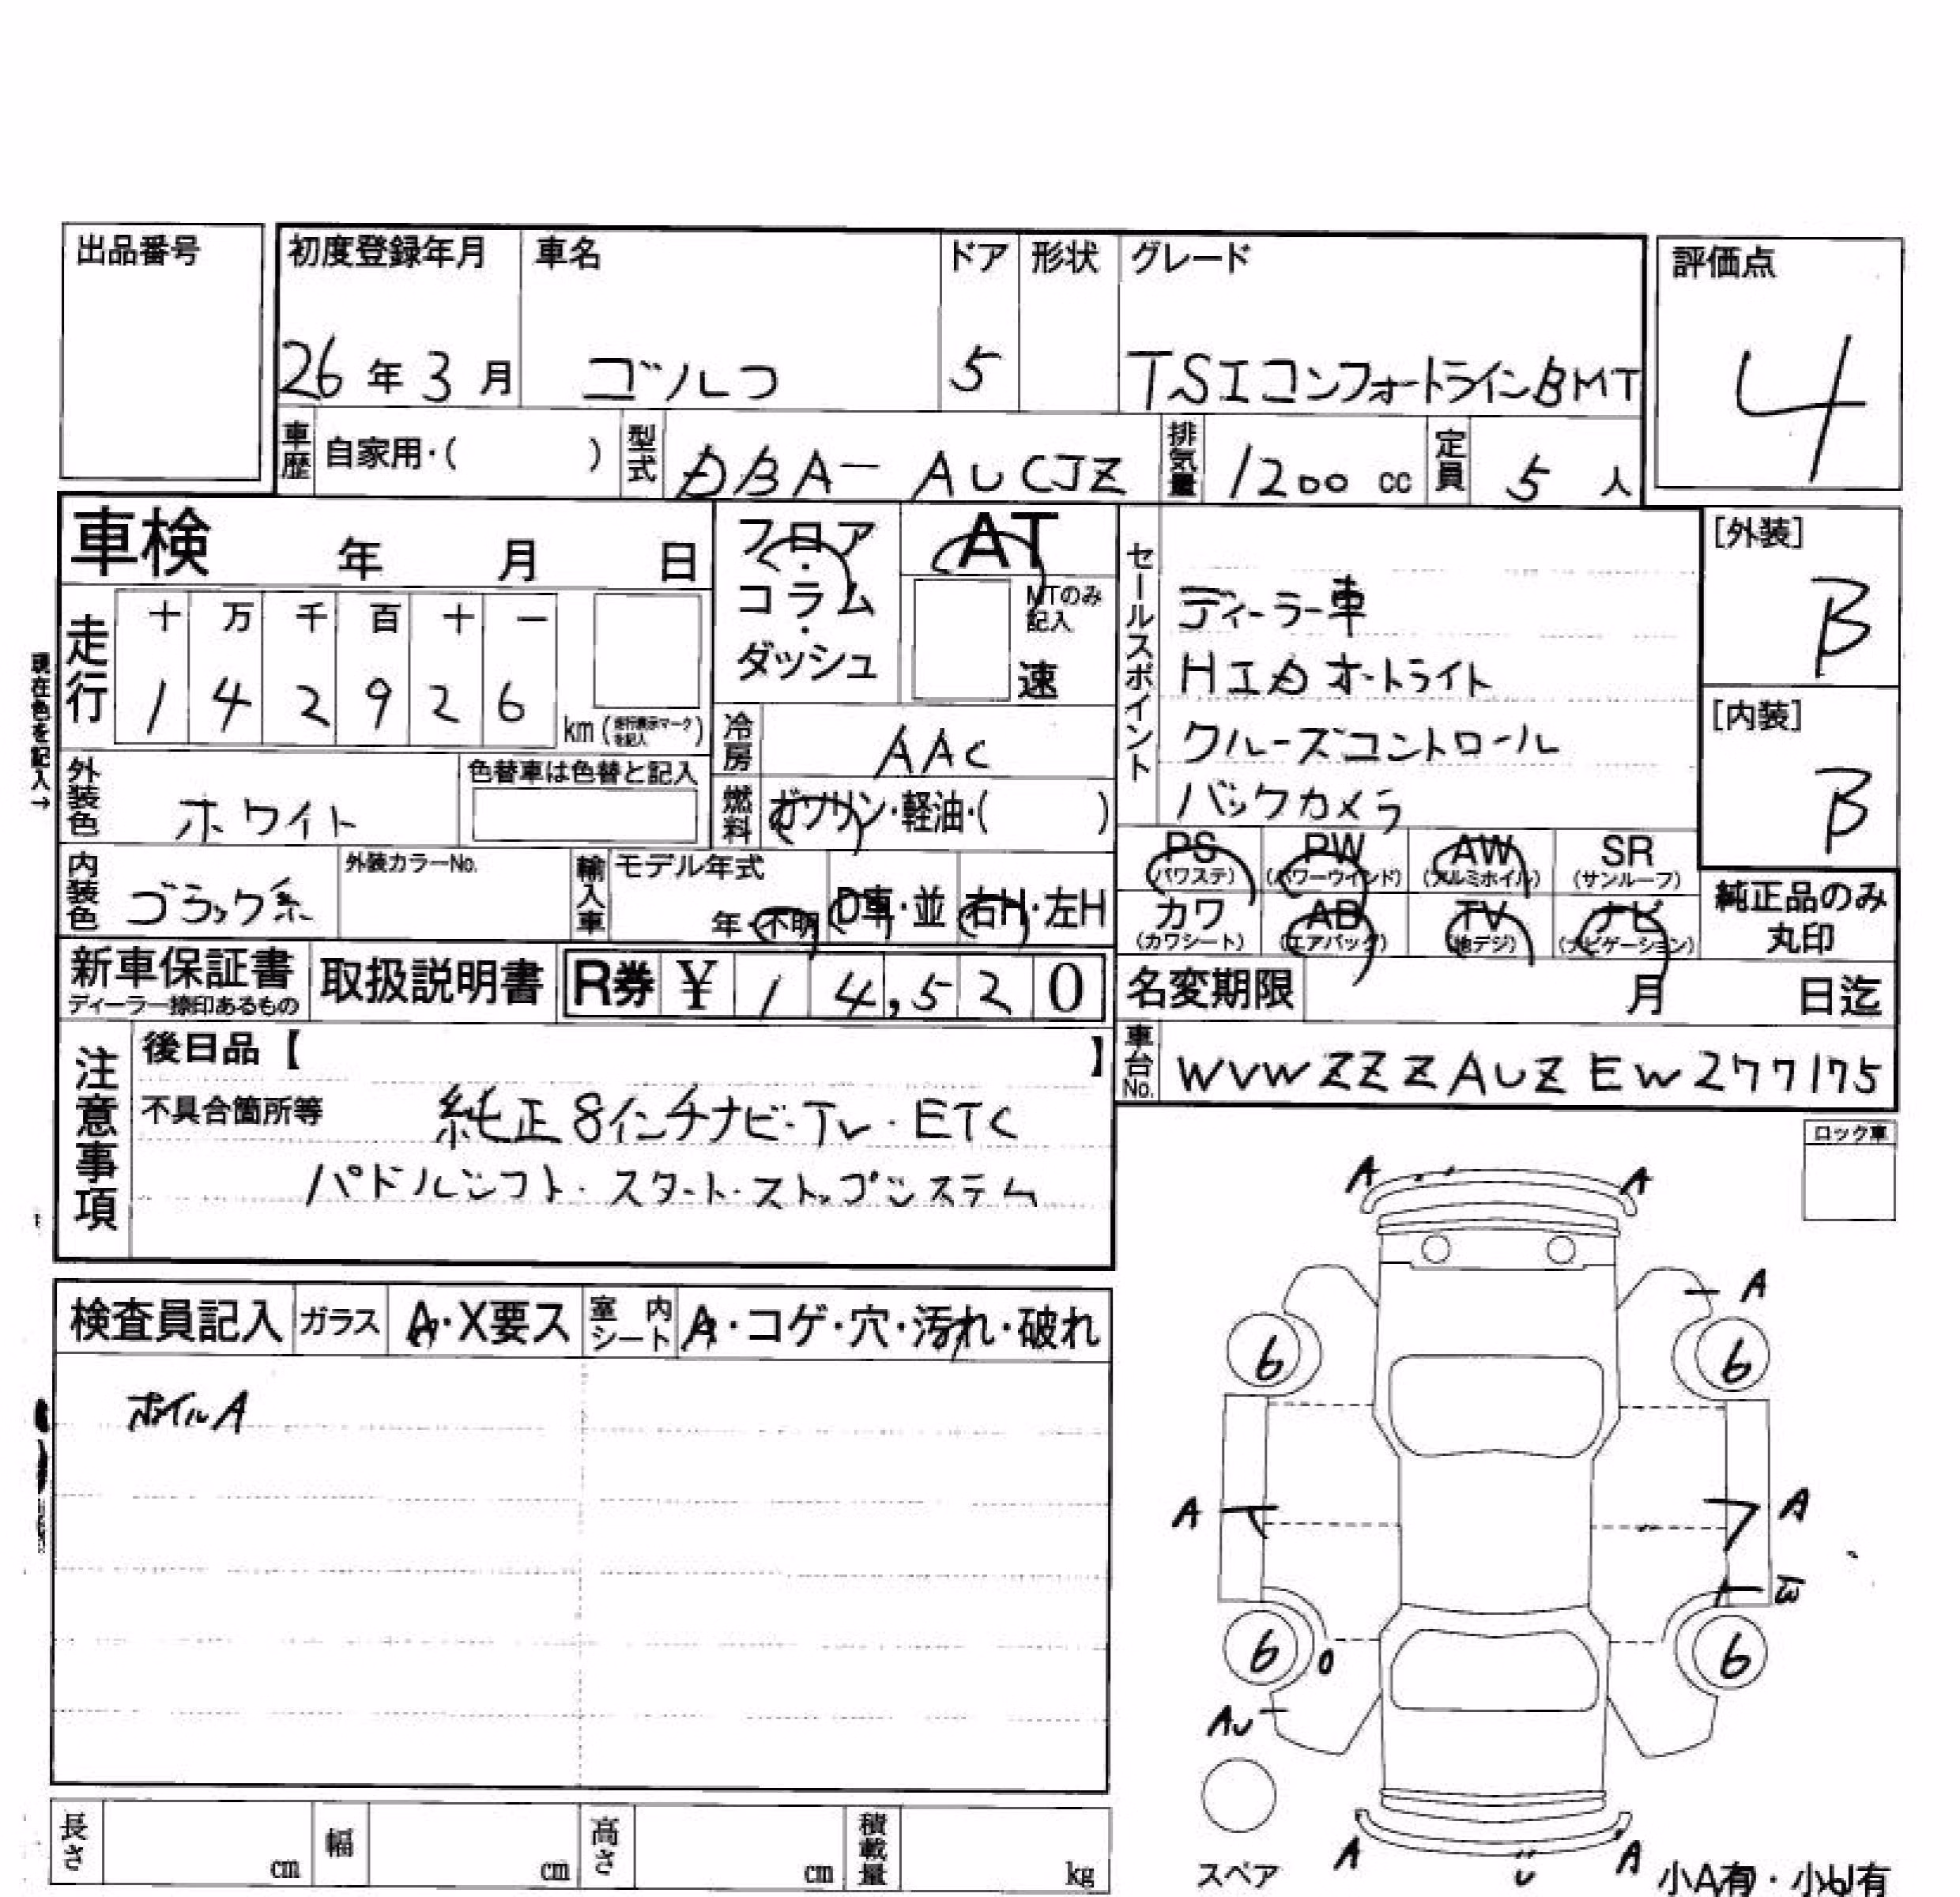 出品番号
初度登録年月 車名 ドア 形状 グレード 評価点
26年3月 ゴルフ 5 TSIコンフォートラインBMT 4
車歴 自家用・( ) 型式 DBA-AUCJZ 排気量 1200 cc 定員 5 人
車検 年 月 日
フロア・コラム・ダッシュ
AT
MTのみ記入
速
走行 十 万 千 百 十 一
1 4 2 9 2 6 km
現在色を記入→
冷房 AAC
外装色 ホワイト 色替車は色替と記入
燃料 ガソリン・軽油・( )
内装色 ブラック系 外装カラーNo.
輸入車 モデル年式 年・不明 D車・並 右H・左H
セールスポイント
ディーラー車
HIDオートライト
クルーズコントロール
バックカメラ
[外装] B
[内装] B
PS (パワステ) PW (パワーウインド) AW (アルミホイル) SR (サンルーフ)
カワ (カワシート) AB (エアバッグ) TV (地デジ) ナビ (ナビゲーション)
純正品のみ丸印
新車保証書 ディーラー捺印あるもの 取扱説明書 R券 ¥ 14,520
名変期限 月 日迄
車台No. WVWZZZAUZEW277175
注意事項
後日品【 】
不具合箇所等 純正8インチナビ・TV・ETC
パドルシフト・スタート・ストップシステム
ロック車
検査員記入 ガラス A・X要ス 室内シート A・コゲ・穴・汚れ・破れ
ホイルA
A A
A
6 6
A A
W
6 6
AU
スペア
A A
小A有・小U有
長さ cm 幅 cm 高さ cm 積載量 kg